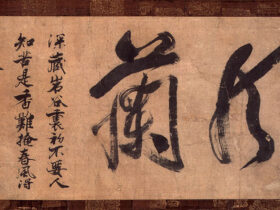 蘭
深藏岩谷裏初不要人
知苦是香難掩春風得